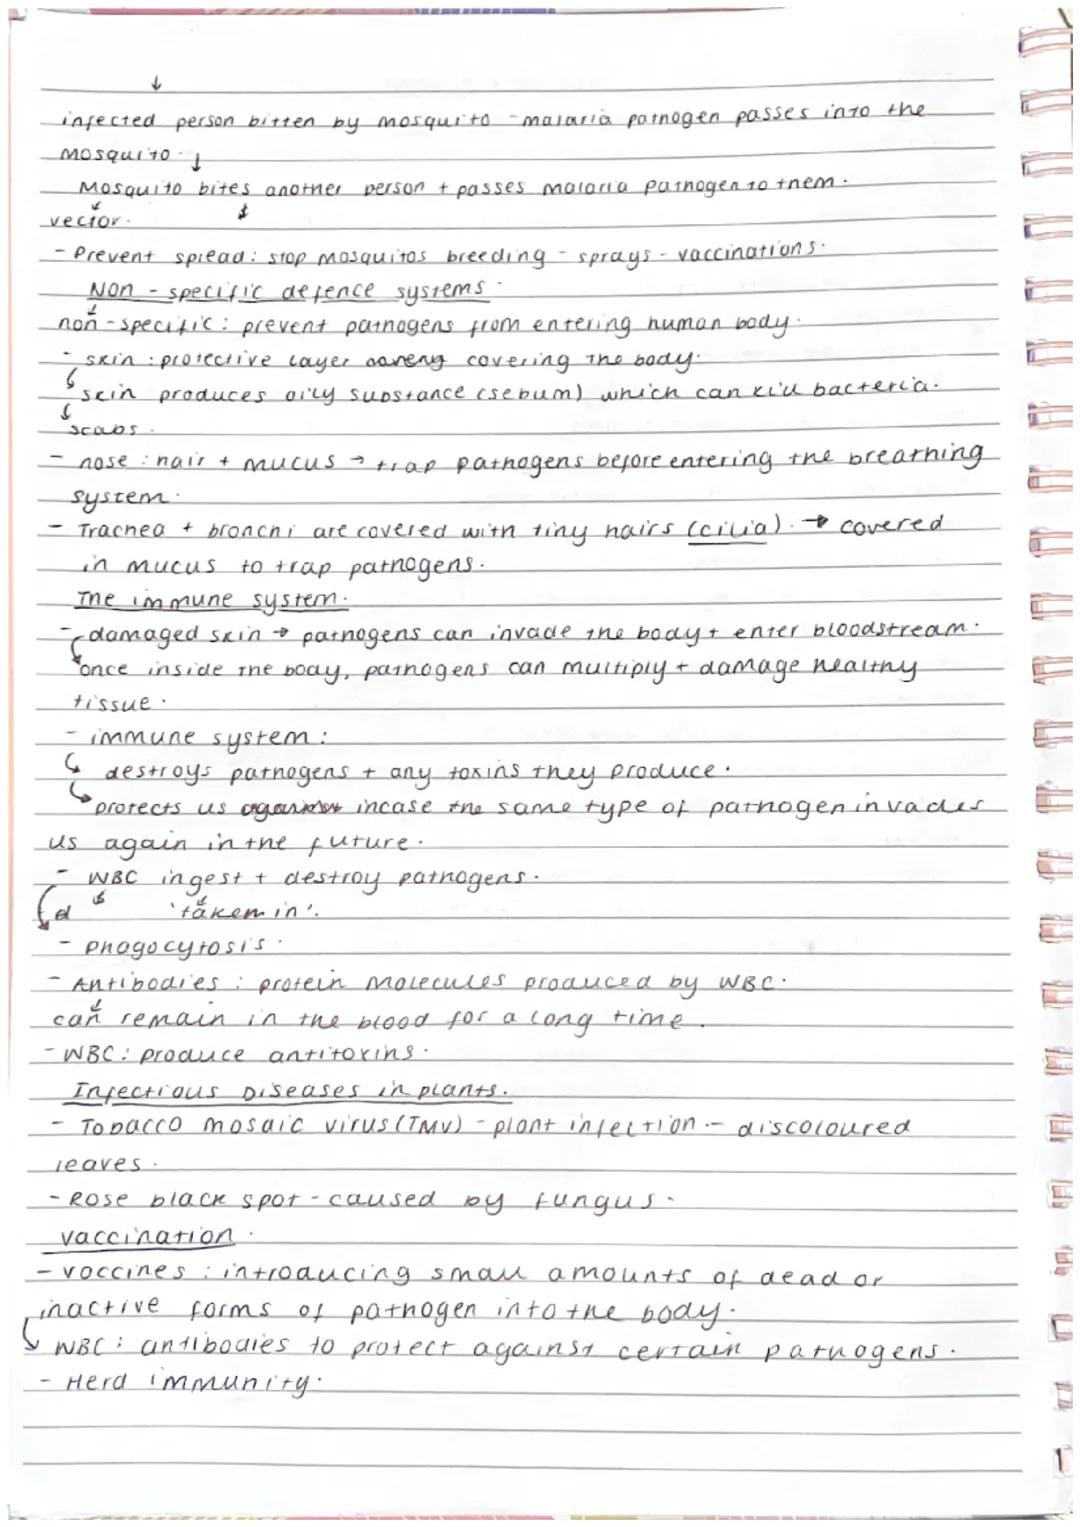 ↓
infected person bitten by mosquito - malaria pathogen passes into the
mosquito. ↓
Mosquito bites another person + passes malaria pathogen to them.
↓ ↓
vector.
- Prevent spread: stop mosquitos breeding - sprays - vaccinations.
Non - specific defence systems.
↓
non - specific: prevent pathogens from entering human body.
- skin : protective layer covering the body.
↳ skin produces oily substance (sebum) which can kill bacteria.
↓
scabs.
- nose : hair + mucus → trap pathogens before entering the breathing
system.
- Trachea + bronchi are covered with tiny hairs (cilia). → covered
in mucus to trap pathogens.
The immune system.
- damaged skin → pathogens can invade the body + enter bloodstream.
↳ once inside the body, pathogens can multiply + damage healthy
tissue.
- immune system:
↳ destroys pathogens + any toxins they produce.
↳ protects us incase the same type of pathogen invades
us again in the future.
- WBC ingest + destroy pathogens.
↓ ↓
'taken in'.
- phagocytosis.
- Antibodies : protein molecules produced by WBC.
↓
can remain in the blood for a long time.
- WBC: produce antitoxins.
Infectious Diseases in plants.
- Tobacco mosaic virus (TMV) - plant infection - discoloured
leaves.
- Rose black spot - caused by fungus.
vaccination.
- vaccines : introducing small amounts of dead or
inactive forms of pathogen into the body.
↳ WBC : antibodies to protect against certain pathogens.
- Herd immunity.